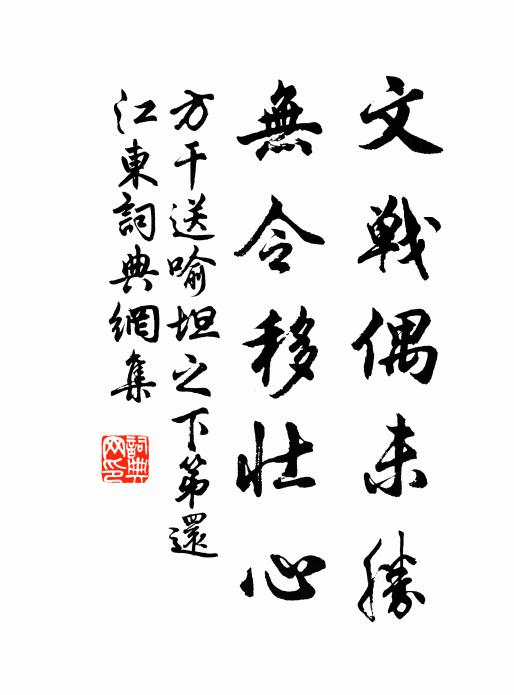 文戰偶未勝
無令移壯心
方干送喻坦之下第還
江東詞典網集
詞典
网印